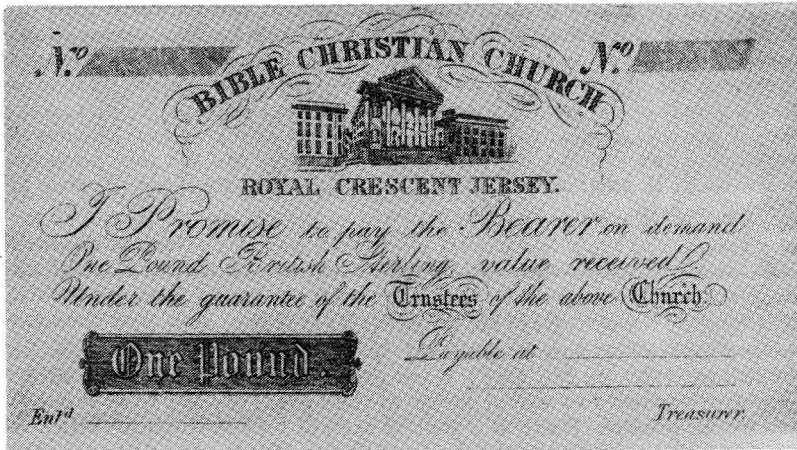 No No
BIBLE CHRISTIAN CHURCH
ROYAL CRESCENT JERSEY.
I Promise to pay the Bearer on demand
One Pound British Sterling, value received
Under the guarantee of the Trustees of the above Church.
One Pound.
Payable at
Entd
Treasurer.